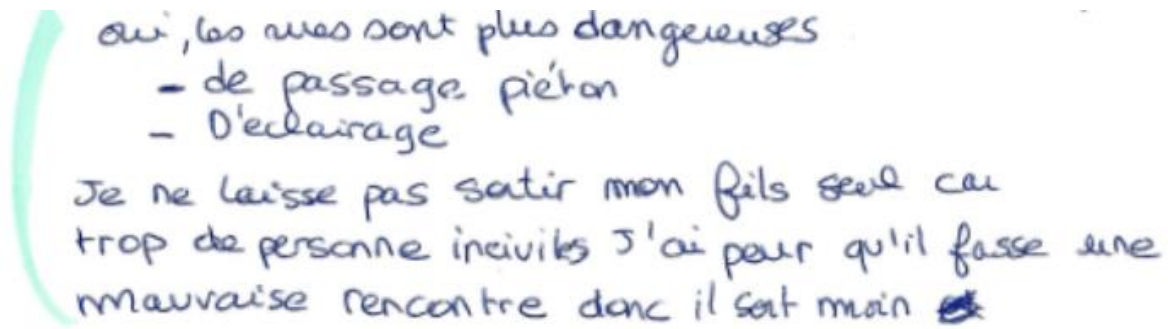 oui, les rues sont plus dangereuses
- de passage piéton
- D'eclairage
Je ne laisse pas sortir mon fils seul car
trop de personne incivils J'ai peur qu'il fasse une
mauvaise rencontre donc il sort moin